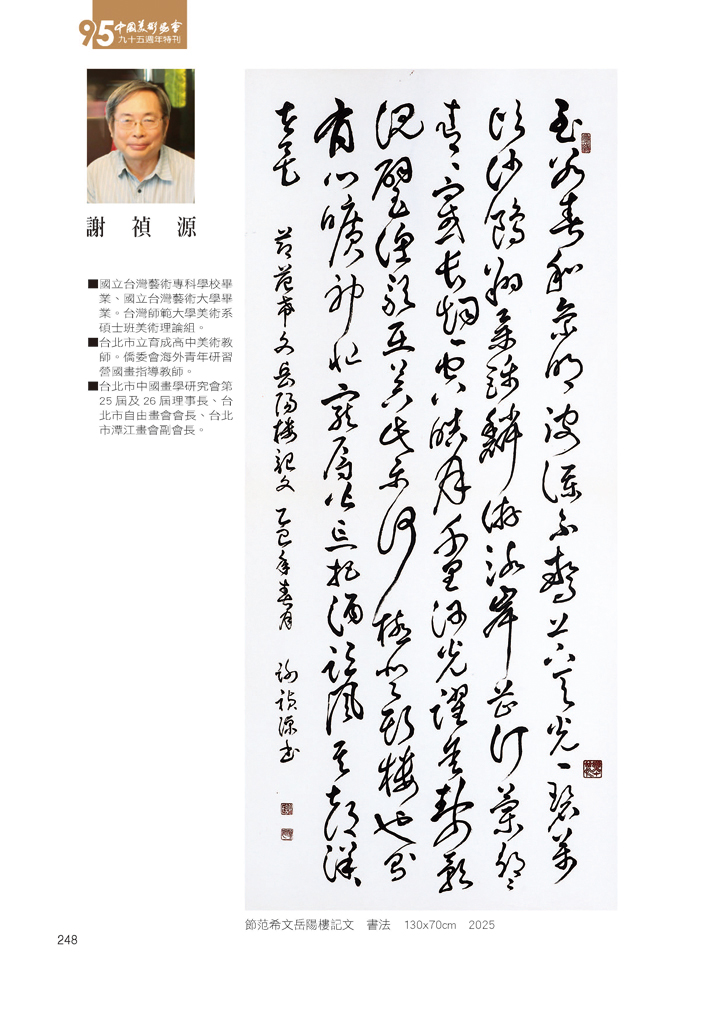 95中國美術協會
九十五週年特刊
謝禎源
■國立台灣藝術專科學校畢
業、國立台灣藝術大學畢
業。台灣師範大學美術系
碩士班美術理論組。
■台北市立育成高中美術教
師。僑委會海外青年研習
營國畫指導教師。
■台北市中國畫學研究會第
25屆及26屆理事長、台
北市自由畫會會長、台北
市潭江畫會副會長。
至若春和景明波瀾不驚上下天光一碧萬
頃沙鷗翔集錦鱗游泳岸芷汀蘭郁〻
青〻而或長烟一空皓月千里浮光躍金靜影
沉璧漁歌互答此樂何極登斯樓也則
有心曠神怡寵辱偕忘把酒臨風其喜洋〻
者矣 節范希文岳陽樓記文 乙巳年春月 謝禎源書
節范希文岳陽樓記文 書法 130x70cm 2025
248